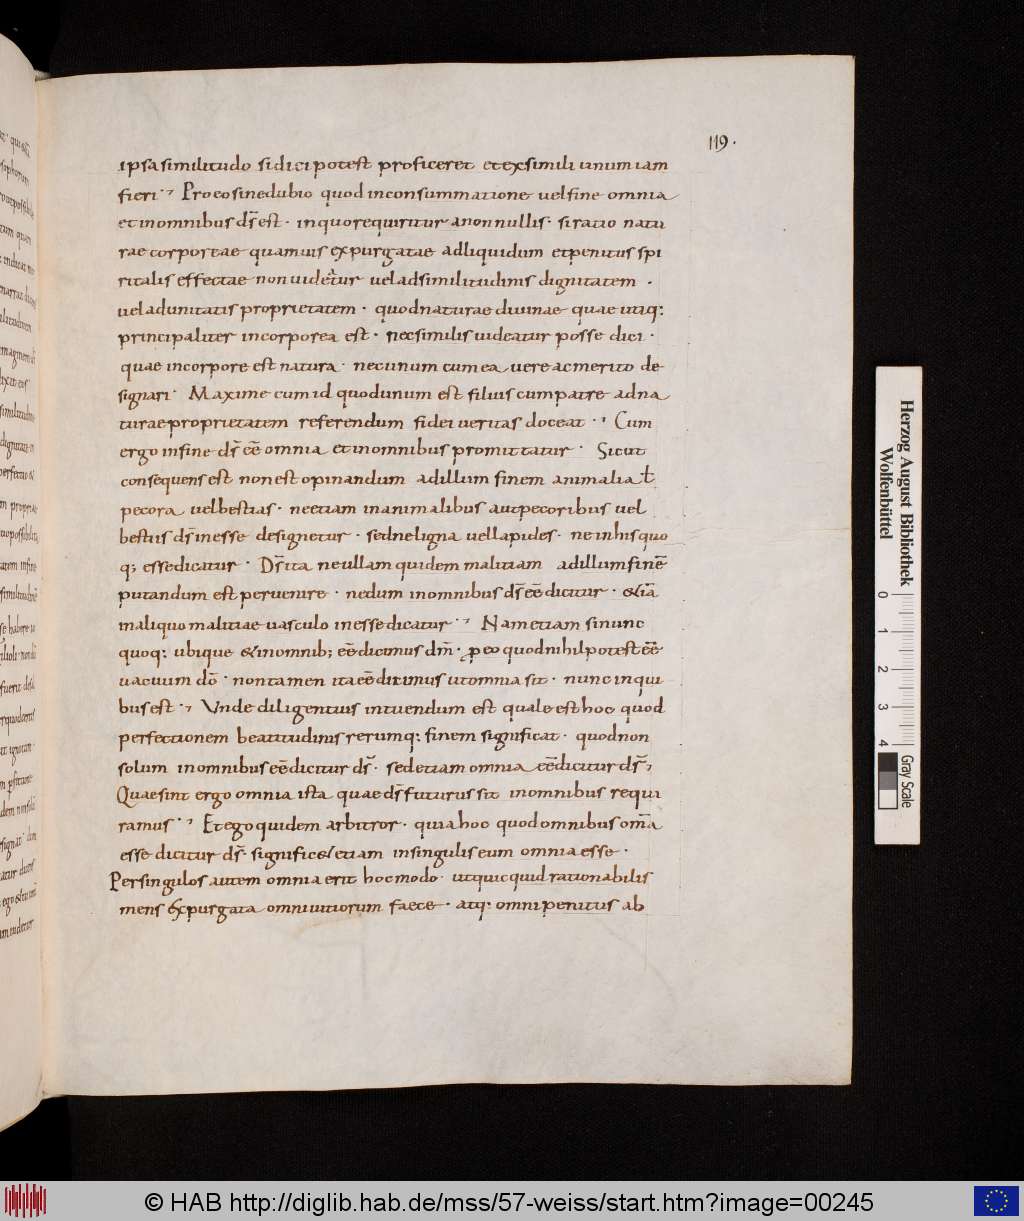 119.
ipsa similitudo si dici potest proficeret et ex simili unum iam
fieri · Pro eo sine dubio quod in consummatione vel fine omnia
et in omnibus d̄s est · in quo requiritur a nonnullis · si ratio natu
rae corporeae quamuis expurgatae ad liquidum et penitus spi
ritalis effectae non uidetur uel ad similitudinis dignitatem ·
uel ad unitatis proprietatem · quod naturae diuinae quae utiq:
principaliter incorporea est · nec similis uideatur posse dici ·
quae incorpore est natura · nec unum cum ea uere ac merito de
signari · Maxime cum id quod unum est filius cum patre ad na
turae proprietatem referendum fidei ueritas doceat · Cum
ergo in fine d̄s eē omnia et in omnibus promittatur · Sicut
consequens est non est opinandum ad illum finem animalia ł
pecora uel bestias · nec etiam in animalibus aut pecoribus uel
bestiis d̄s inesse designetur · sed ne ligna uel lapides · ne in his quo
q; esse dicatur · D̄s ita ne ullam quidem malitiam ad illum finē
putandum est peruenire · nedum in omnibus d̄s eē dicitur · & iā
in aliquo malitiae uasculo inesse dicatur · Nam etiam si nunc
quoq: ubique & in omnib; eē dicimus dm̄ · pro eo quod nihil potest eē
uacuum dō · non tamen ita eē dicimus ut omnia sit · nunc in qui
bus est · Unde diligentius intuendum est quale est hoc quod
perfectionem beatitudinis rerumq: finem significat · quod non
solum in omnibus eē dicitur d̄s · sed etiam omnia eē dicitur d̄s
Quae sint ergo omnia ista quae d̄s futurus sit in omnibus requi
ramus · Et ego quidem arbitror · quia hoc quod omnibus om̄a
esse dicitur d̄s · signific& etiam in singulis eum omnia esse ·
Per singulos autem omnia erit hoc modo · ut quicquid rationabilis
mens expurgata omni uitiorum faece · atq: omni penitus ab
Herzog August Bibliothek
Wolfenbüttel
0 1 2 3 4
Gray Scale
© HAB http://diglib.hab.de/mss/57-weiss/start.htm?image=00245